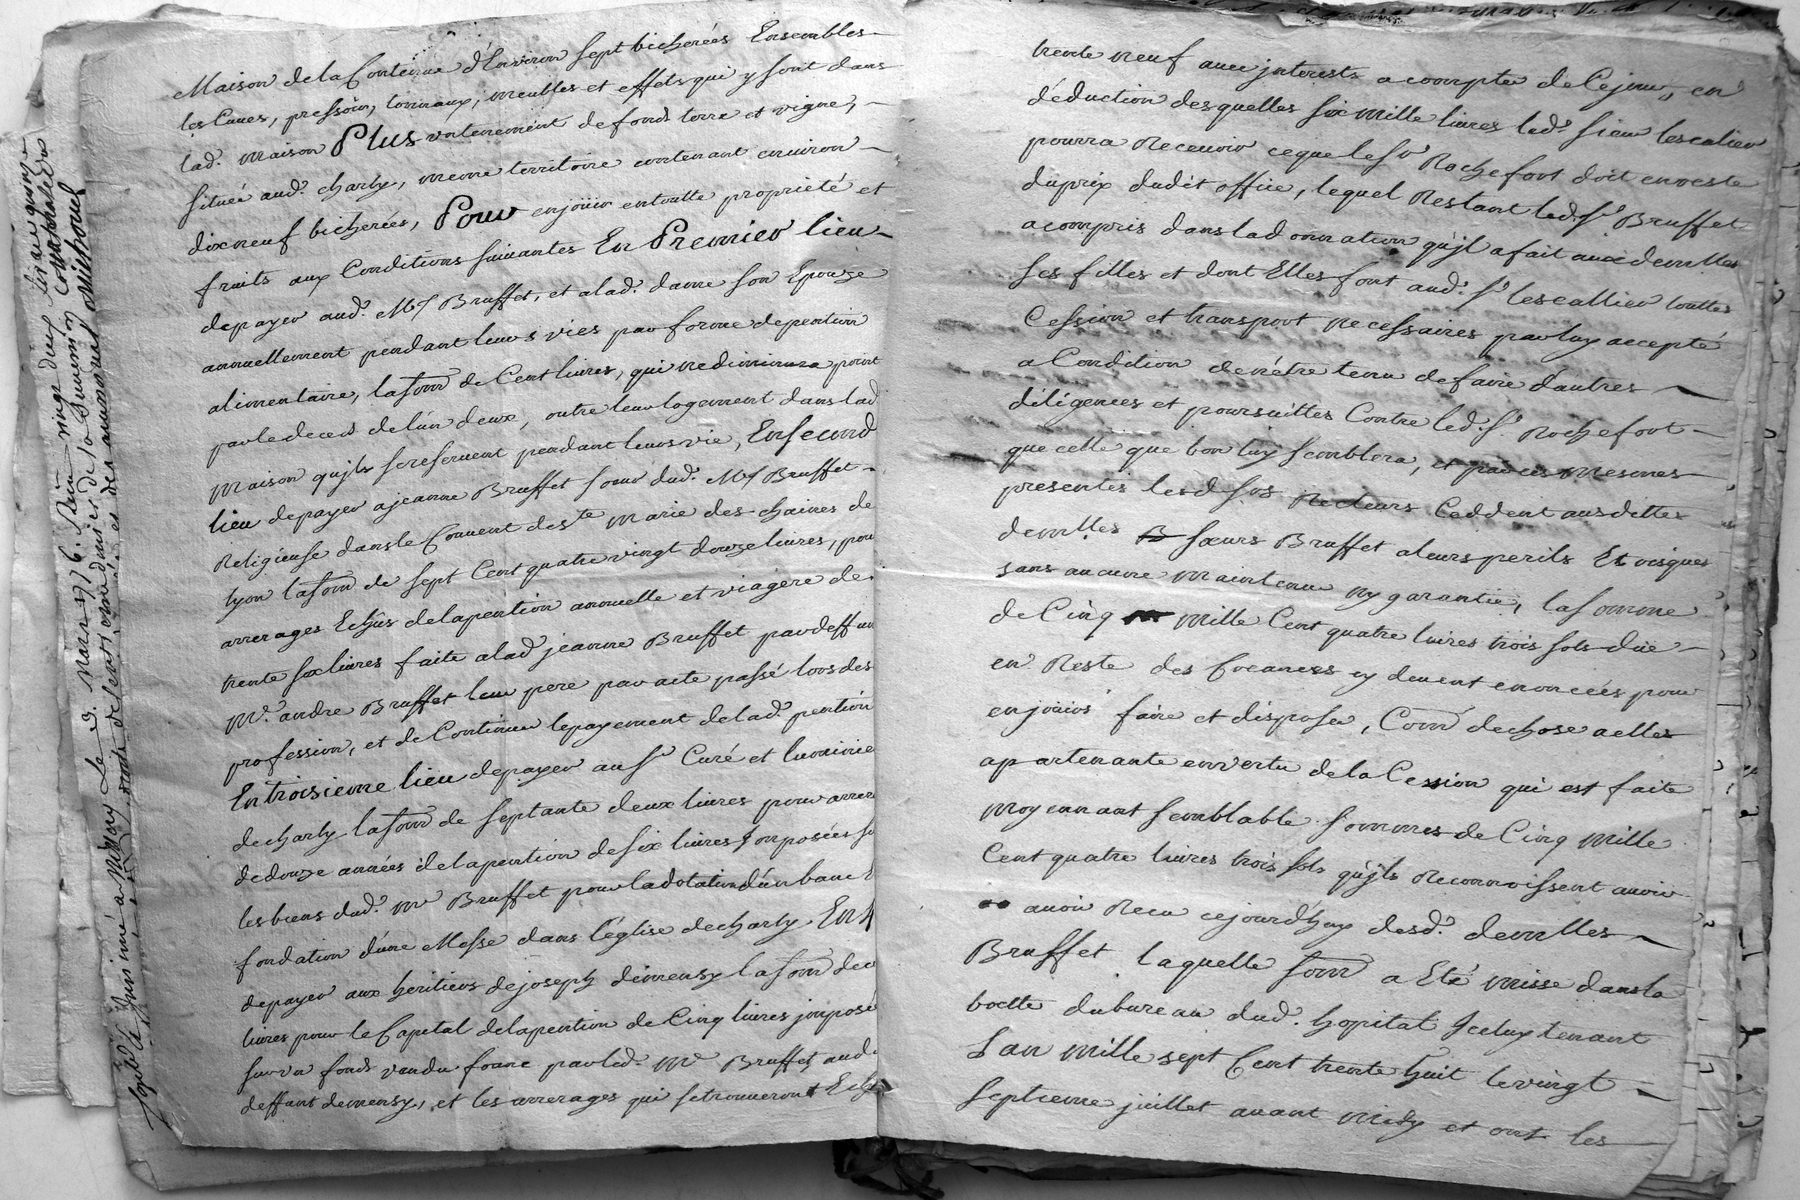 Maison de la Contenüe d'Environ sept bicherées Ensembles
les Cuves, pressoir, tonneaux, meubles et effets qui y sont dans
lad. maison Plus un tenement de fonds terre et vigne,
située aud. charly, meme territoire contenant environ
dixneuf bicherées, Pour enjouir entoutte proprieté et
fruits aux Conditions suivantes En Premier lieu
depayer aud. Mr Bruffet, et alad. dame son Epouze
annuellement pendant leurs vies par forme depention
alimentaire, la som de Cent livres, qui nediminura point
parledeces delun deux, outre leur logement dans lad
maison qu'jls sereservent pendant leurs vie, Ensecond
lieu depayer ajeanne Bruffet soeur dud. Mr Bruffet
Religieuse dansle Couvent deste marie des chaines de
lyon lasom de sept Cent quatre vingt douze livres, pour
arrerages Echûs delapention annuelle et viagere de
trente six livres faite alad jeanne Bruffet par deffun
Mr. andre Bruffet leur pere par acte passé lors des
profession, et de Continuer lepayement delad. pention
Entroisieme lieu depayer au Sr Curé et luminie
decharly lasom de septante deux livres pour arrer
dedouze années delapention desix livres jmposées su
les biens dud. Mr Bruffet pour ladotation d'un banc
fondation d'une Messe dans l'église decharly. En
depayer aux heritiers dejoseph dimensy lasom de
livres pour le Capital delapention de Cinq livres jmposé
sur un fonds vendu franc parled. Mr Bruffet aud.
deffunt demensy, et les arrerages qui setrouveront Ech
trente neuf avec jnterests acompter deCejour, en
déduction desquelles six mille livres led. sieur lescalier
pourra Recevoir cequelesr Rochefort doit enreste
duprix dudit office, lequel Restant led. Sr Bruffet
acompris dans ladonnation qu'jl afait auxd demlles
ses filles et dont Elles font aud. Sr lescallier touttes
Cession et transport necessaires parluy accepté
a Condition denétre tenu defaire d'autres
diligences et poursuittes Contre led. Sr. Rochefort
que celle que bon luy semblera, et parces mesmes
presentes lesd srs Recteurs Ceddent ausdittes
demlles soeurs Bruffet aleurs perils Et risques
sans aucune maintenue ny garantie, lasomme
de Cinq mille Cent quatre livres trois sols düe
en Reste des Creances cy devent enoncées pour
enjouir faire et disposer, Com dechose aelles
apartenante envertu dela Cession qui est faite
moyennant semblable sommes de Cinq mille
Cent quatre livres trois sols qu'jls Reconnoissent avoir
avoir Recu cejourd'huy desd. demlles
Bruffet laquelle som a Eté misse dans la
boette dubureau dud. hopital Jceluy tenant
Lan mille sept Cent trente huit levingt
septieme juillet avant midy et ont les